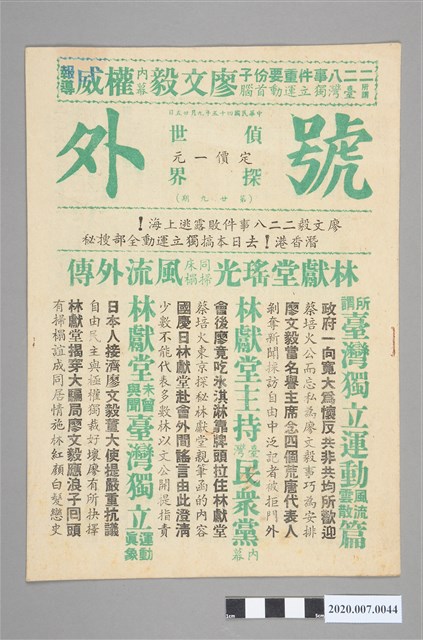 所謂
二二八事件重要份子
臺灣獨立運動首腦
廖文毅
內幕
權威
報導
中華民國四十五年九月廿五日
號外
偵探
世界
定價一元
(第廿九期)
廖文毅二二八事件敗露逃上海!
潛香港!去日本搞獨立運動全部搜秘
林獻堂瑤光同床同榻風流外傳
所謂臺灣獨立運動風流雲散篇
政府一向寬大為懷反共非共均所歡迎
蔡培火公而忘私為廖文毅事巧為安排
廖文毅當名譽主席念四個荒唐代表人
剥奪新聞採訪自由中泛記者被拒門外
林獻堂主持臺灣民衆黨內幕
會後廖竟吃氷淇淋靠牌頭拉住林獻堂
蔡培火東京探秘林獻堂親筆函的內容
國慶日林獻堂赴會外間謠言由此澄清
少數不能代表多數林以文公開提指責
林獻堂未曾與聞臺灣獨立運動眞象
日本人接濟廖文毅董大使提嚴重抗議
自由民主與極權獨裁好壞廖有所抉擇
林獻堂揭穿大騙局廖文毅應浪子囘頭
有掃榻誼成同居情施杯紅顏白髪戀史
2020.007.0044